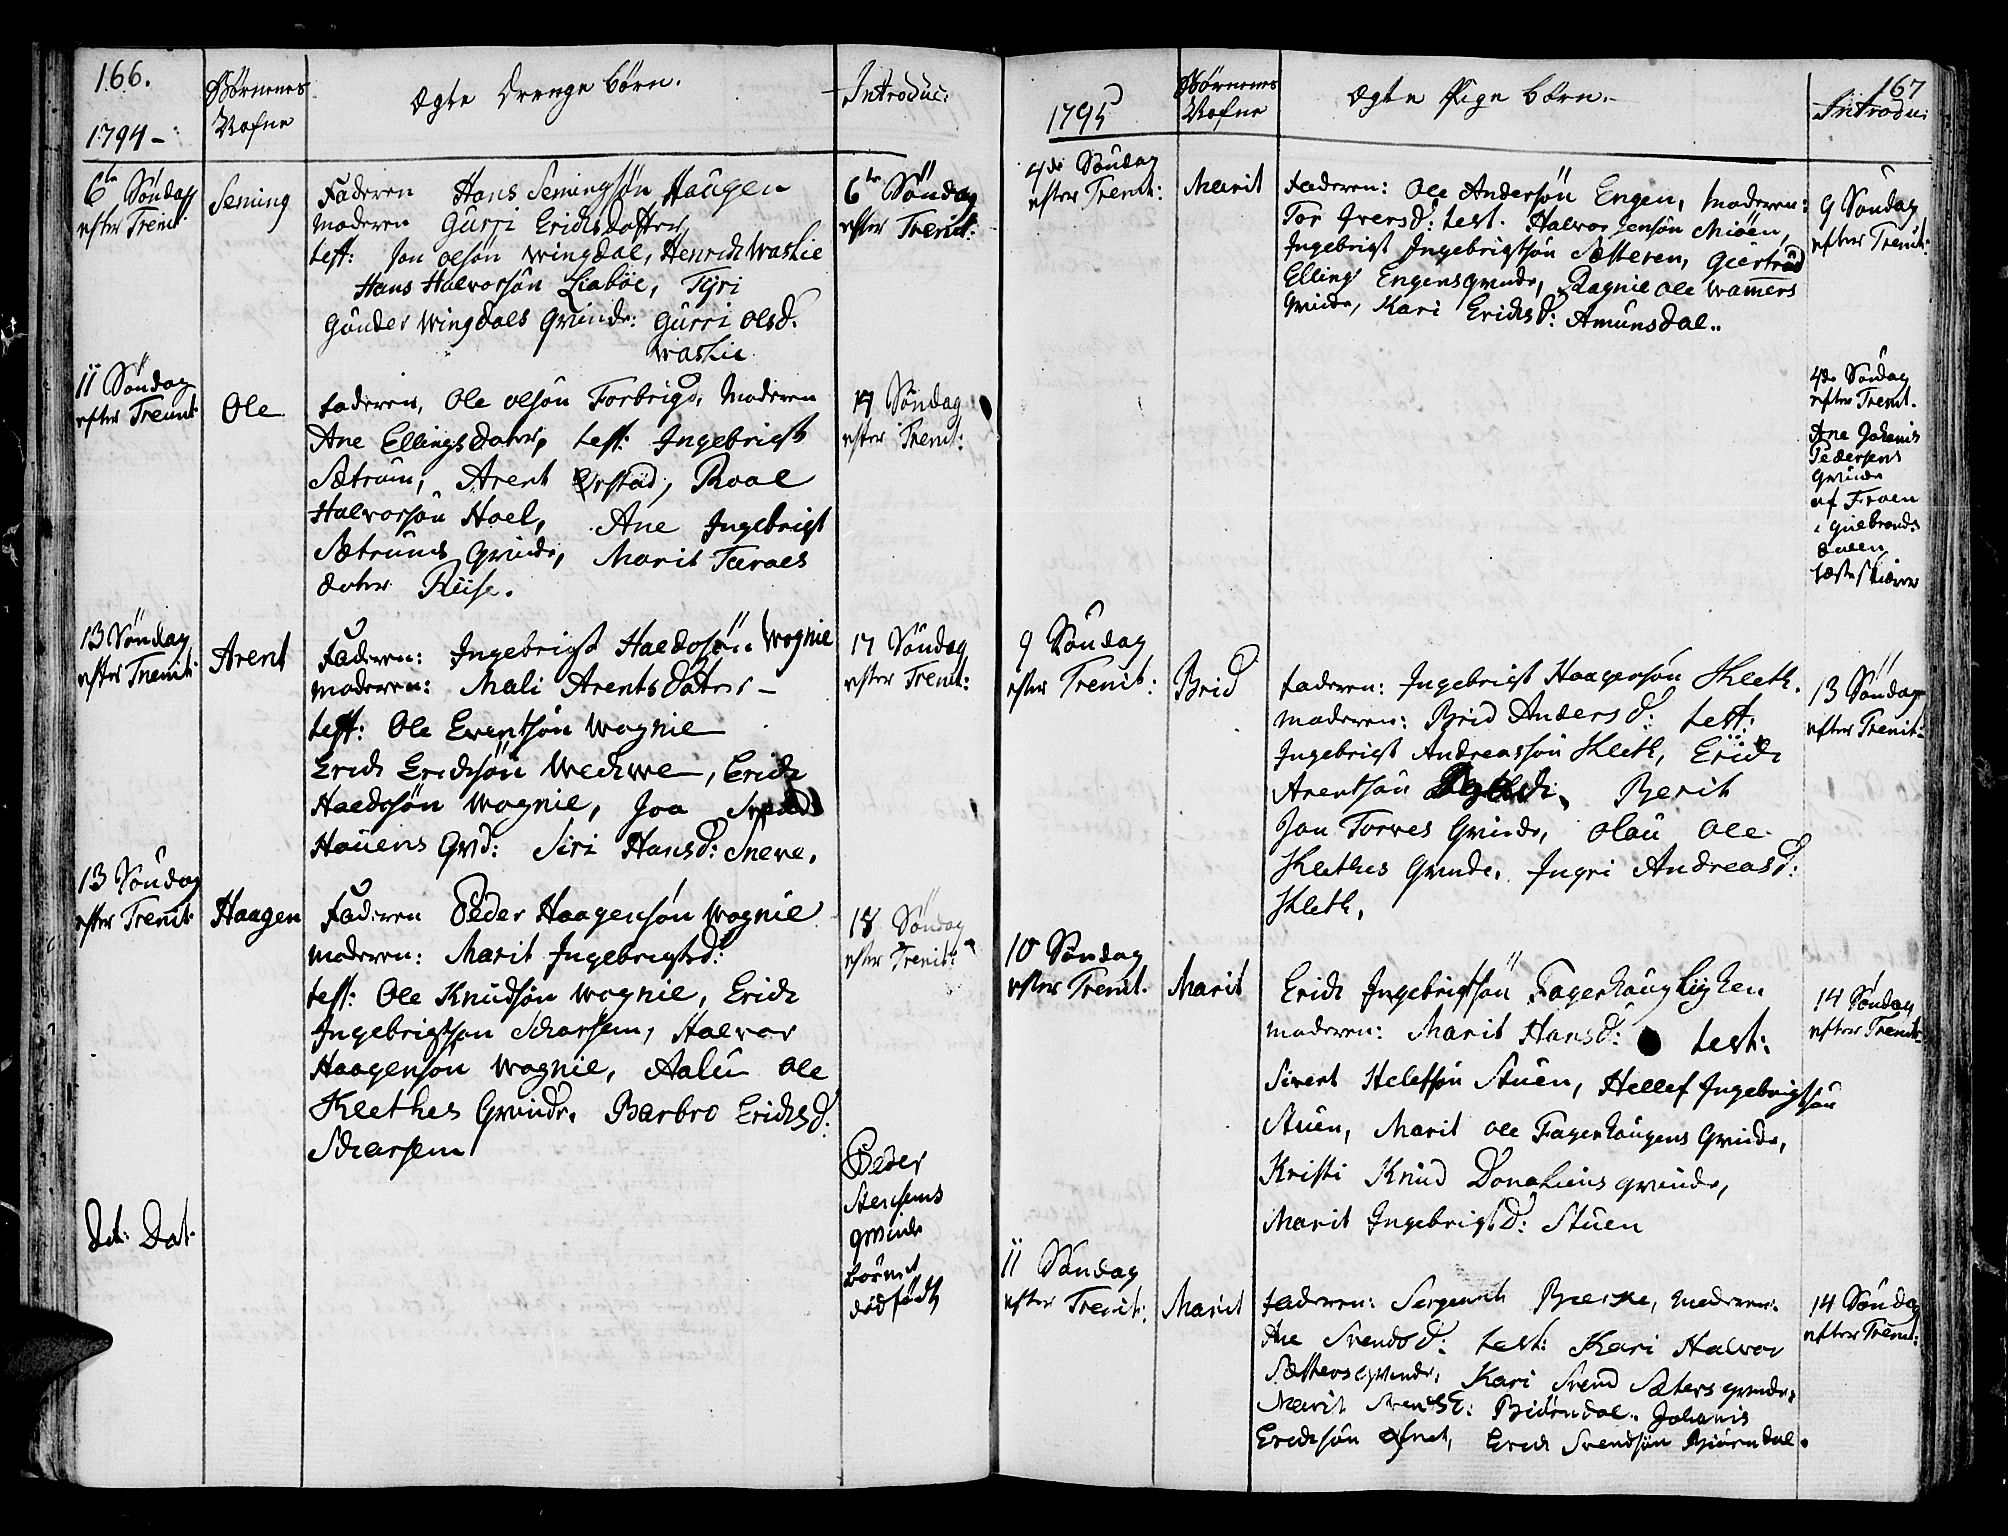 166.
1794 -
Børnenes
Nafne
Ægte Drenge børn.
Introduc:
6te Søndag
efter Trenit:
Seming
Faderen Hans Semingsøn Haugen
Moderen Gurri Erichsdatter
test: Jon olsøn Wingdal, Henrich Waslie
Hans Halvorsøn Liaböe, Tyri
Gunder Wingdals Qvinde: Gurri olsd.
Waslie
6te Søndag
efter Trenit:
11 Søndag
efter Trenit:
Ole
faderen, Ole olsøn Forbrigd, Moderen
Ane Ellingsdatter, test: Ingebrigt
Sætrum, Arent Ørstad, Roal
Halvorsøn Hoel, Ane Ingebrigt
Sætrums Qvinde, Marit Taraes
dater Riise.
17 Søndag
efter Trenit:
13 Søndag
efter Trenit:
Arent
Faderen: Ingebrigt Haldosøn Wognie
moderen: Mali Arentsdater -
test: Ole Evensøn Wognie
Erich Erichsøn Wechve, Erich
Haldosøn Wognie, Joa
Hauens Qvd: Siri Hansd: Sneve.
17 Søndag
efter Trenit:
13 Søndag
efter Trenit:
Haagen
Faderen Peder Haagensøn Wognie
moderen: Marit Ingebrigtsd:
test: Ole Knudsøn Wognie, Erich
Ingebrigtsøn Scharsem, Halvor
Haagensøn Wognie, Aalu ole
Klethes Qvinde, Barbro Erichsd:
Scharsem
18 Søndag
efter Trenit:
Dit: Dat.
Peder
Stensems
qvinde
børnet
dødfødt
167
1795
Børnenes
Nafne
Ægte Pige børn.
Introdu:
4de Søndag
efter Trenit:
Marit
faderen: Ole Andersøn Engen, moderen:
Tor Iversd: test. Halvor Jensøn Miøen,
Ingebrigt Ingebrigtsøn Sætteren, Giertrud
Elling Engens qvinde, Ragnie ole Wamers
qvinde, Kari Erichsd: Amunsdal..
9 Søndag
efter Trenit:
4de Søndag
efter Trenit.
Ane Johanis
Pedersens
Qvinde
af Froen
i Guebrands
dalen
9 Søndag
efter Trenit:
Brid
faderen: Ingebrigt Haagensøn Kleth.
moderen: Brid Andersd: test:
Ingebrigt Andreassøn Kleth, Erich
Arentsøn Berit
Jon Torves Qvinde, Olau Ole
Klethes Qvinde, Ingri Andreasd:
Kleth.
13 Søndag
efter Trenit:
10 Søndag
efter Trenit.
Marit
Erich Ingebrigtsøn Fagerhaugligken
moderen: Marit Hansd: test:
Sivert Helefsøn Stuen, Hellef Ingebrigtsøn
Stuen, Marit ole Fagerhaugens Qvinde,
Kristi Knud Donaliens qvinde,
Marit Ingebrigtsd: Stuen
14 Søndag
efter Trenit:
11 Søndag
efter Trenit:
Marit
faderen: Sergeant Bierke, moderen:
Ane Svendsd: test: Kari Halvor
Sætters qvinde, Kari Svend Sæters qvinde,
Marit Svendsd: Biørndal.. Johanis
Erichsøn Ofnet, Erich Svendsøn Biørndal.
14 Søndag
efter Trenit: